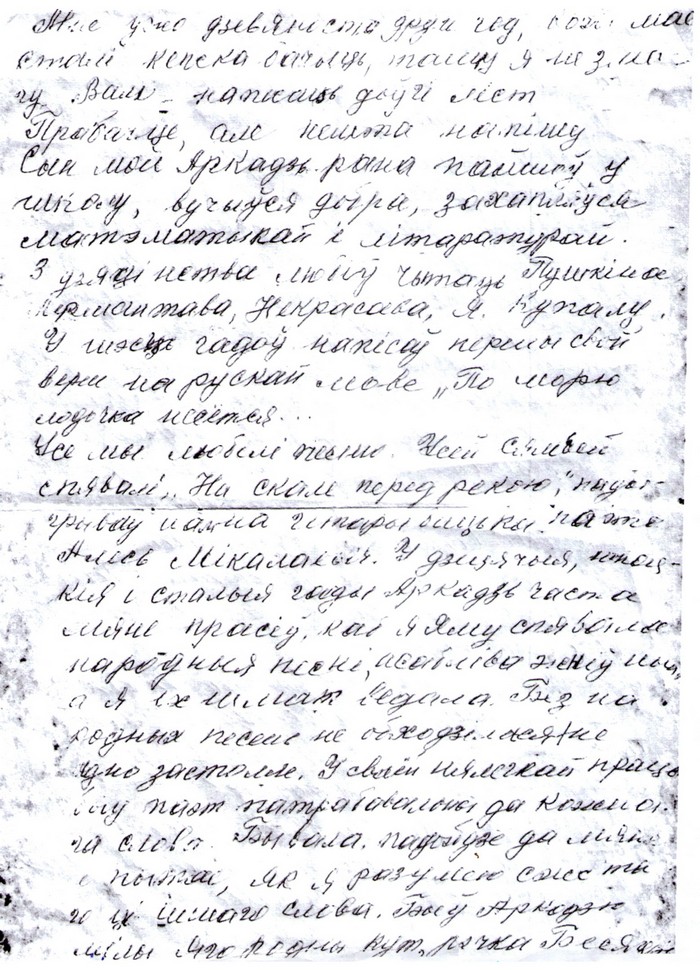 Мне ужо дзевяноста други год, вочи мае
сталі кепска бачыць, таму я не зма-
гу Вам напісаць доўгі ліст
Прабачце, але нешта напішу
Сын мой Аркадзь рана пайшоў у
школу, вучыўся добра, захапляўся
матэматыкай і літаратурай.
З дзяцінства любіў чытаць Пушкіна
Лермантава, Некрасава, Я. Купалу.
У шэсць гадоў напісаў першы свой
верш на рускай мове „По морю
лодочка несётся...
Усе мы любілі песню. Усей сямьей
спявалі „На скале перед рекою," пады-
грываў на гітары бацька паэта
Алесь Мікалаевіч. У дзіцячыя, юнац-
кія і сталыя гады Аркадзь часта
мяне прасіў, каб я яму спявала
народныя песні, асабліва жніўныя,
а я іх шмат ведала. Без на
родных песень не абходзілася ні
адно застолле. У сваёй нялёгкай працы
паэт патрабавальна да кожна
га слова. Бывала, падыйдзе да мяне
і пытае, як я разумею сэнс та
го ці іншаго слова. Быў Аркадзю
мілы яго родны кут, рэчка Бесядзь